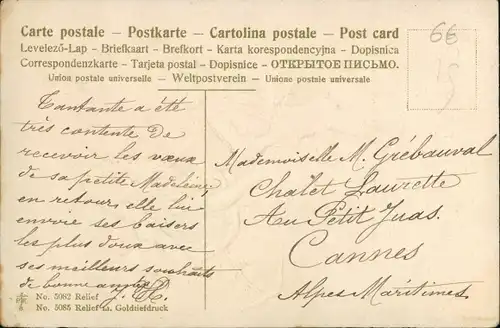 Carte postale - Postkarte - Cartolina postale - Post card
Levelező-Lap - Briefkaart - Brefkort - Karta korespondencyjna - Dopisnica
Correspondenzkarte - Tarjeta postal - Dopisnice - ОТКРЫТОЕ ПИСЬМО.
Union postale universelle - Weltpostverein - Unione postale universale
66
Tantante a été
très contente de
recevoir les vœux
de sa petite Madeleine,
en retour, elle lui
envoie ses baisers
les plus doux avec
ses meilleurs souhaits
de bonne année
Mademoiselle M. Grébauval
Chalet Laurette
Au Petit Juas.
Cannes
Alpes Maritimes
No. 5082 Relief
No. 5085 Relief la. Golddiefdruck